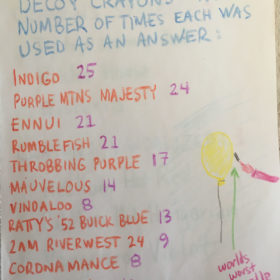 DECOY CRAYONS
NUMBER OF TIMES EACH WAS
USED AS AN ANSWER:
INDIGO 25
PURPLE MTNS MAJESTY 24
ENNUI 21
RUMBLEFISH 21
THROBBING PURPLE 17
MAUVELOUS 14
VINDALOO 8
RATTY'S '52 BUICK BLUE 13
2AM RIVERWEST 24 9
CORONAMANCE 8
worlds
worst